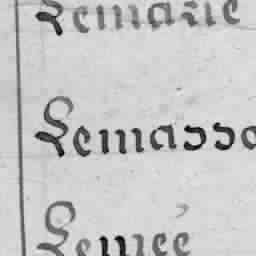 Lemarie
Lemasso
Lemée